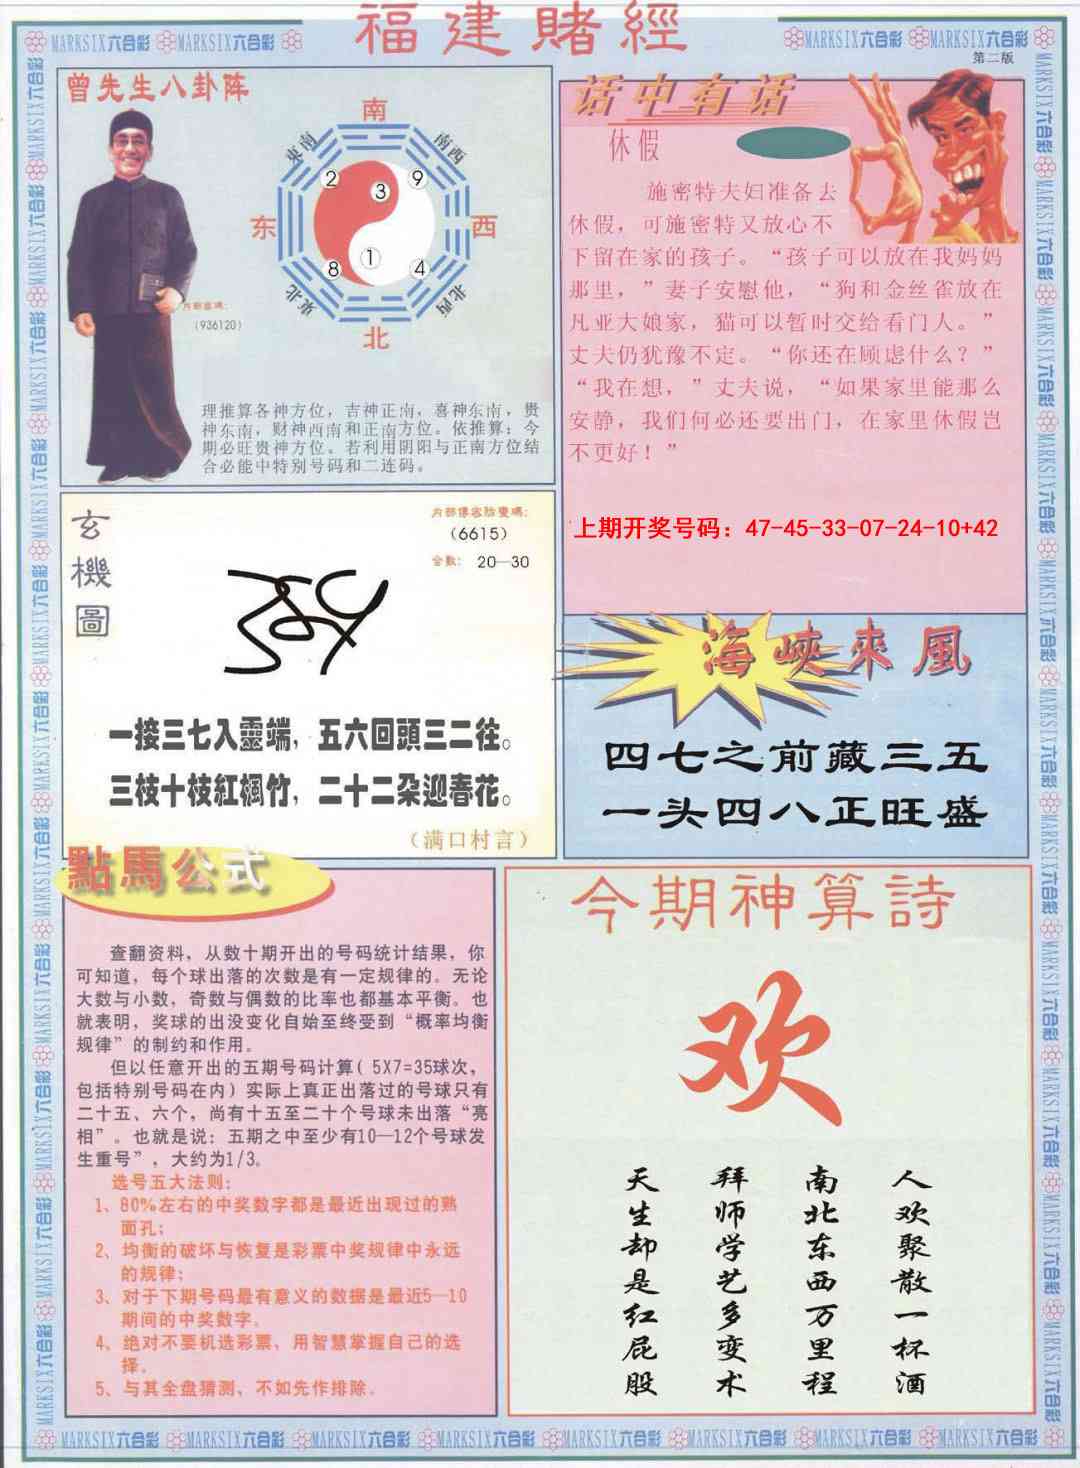 福建賭經
MARKSIX六合彩 MARKSIX六合彩
MARKSIX六合彩 MARKSIX六合彩
第二版
曾先生八卦阵
南
東南
南西
2
3
9
东
西
8
1
4
東北
北西
北
内部密碼：
（936120）
理推算各神方位，吉神正南，喜神东南，贵
神东南，财神西南和正南方位。依推算：今
期必旺贵神方位。若利用阴阳与正南方位结
合必能中特别号码和二连码。
话中有话
休假
施密特夫妇准备去
休假，可施密特又放心不
下留在家的孩子。“孩子可以放在我妈妈
那里，”妻子安慰他，“狗和金丝雀放在
凡亚大娘家，猫可以暂时交给看门人。”
丈夫仍犹豫不定。“你还在顾虑什么？”
“我在想，”丈夫说，“如果家里能那么
安静，我们何必还要出门，在家里休假岂
不更好！”
上期开奖号码：47-45-33-07-24-10+42
玄機圖
内部傳密胎雙碼：
（6615）
合數： 20—30
一接三七入靈端，五六回頭三二往。
三枝十枝紅楓竹，二十二朵迎春花。
（满口村言）
海峽來風
四七之前藏三五
一头四八正旺盛
點馬公式
查翻资料，从数十期开出的号码统计结果，你
可知道，每个球出落的次数是有一定规律的。无论
大数与小数，奇数与偶数的比率也都基本平衡。也
就表明，奖球的出没变化自始至终受到“概率均衡
规律”的制约和作用。
但以任意开出的五期号码计算（5X7=35球次，
包括特别号码在内）实际上真正出落过的号球只有
二十五、六个，尚有十五至二十个号球未出落“亮
相”。也就是说：五期之中至少有10—12个号球发
生重号”，大约为1/3。
选号五大法则：
1、80%左右的中奖数字都是最近出现过的熟
面孔；
2、均衡的破坏与恢复是彩票中奖规律中永远
的规律；
3、对于下期号码最有意义的数据是最近5—10
期间的中奖数字。
4、绝对不要机选彩票，用智慧掌握自己的选
择。
5、与其全盘猜测，不如先作排除。
今期神算詩
欢
人欢聚散一杯酒
南北东西万里程
拜师学艺多变术
天生却是红屁股
MARKSIX六合彩 MARKSIX六合彩 MARKSIX六合彩 MARKSIX六合彩 MARKSIX六合彩 MARKSIX六合彩 MARKSIX六合彩 MARKSIX六合彩